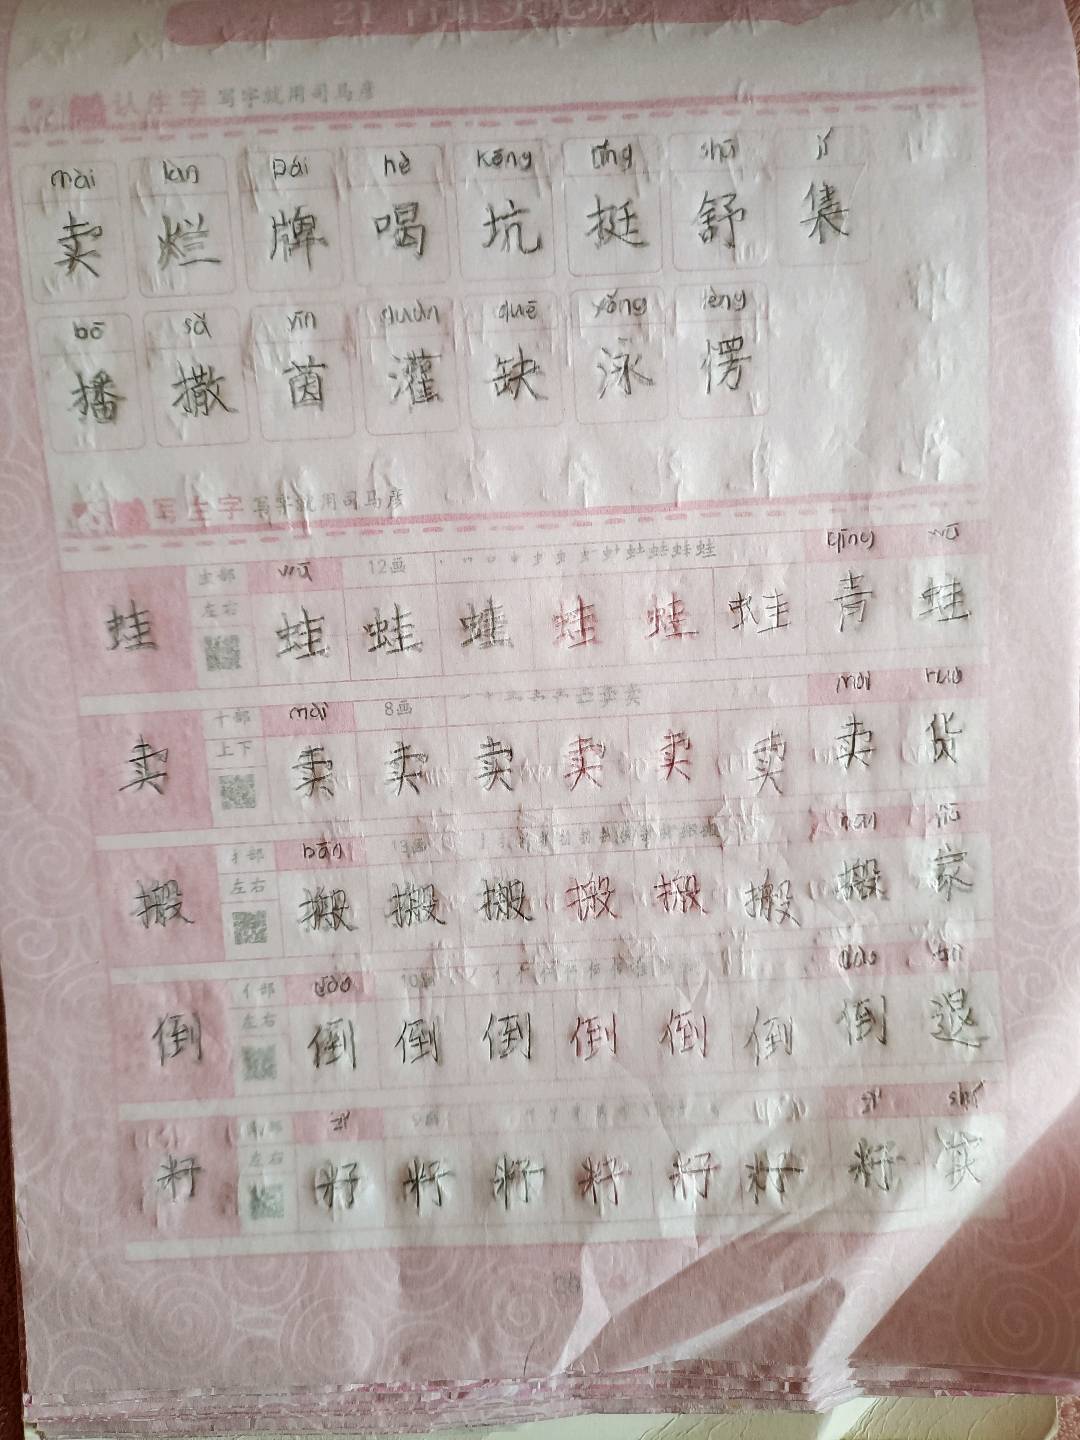 21 青蛙卖泥塘
认生字 写字就用司马彦
mài làn pái hē kēng tǐng shū jí
卖 烂 牌 喝 坑 挺 舒 集
bō sǎ yīn guàn quē yǒng lèng
播 撒 茵 灌 缺 泳 愣
写生字 写字就用司马彦
虫部 wā 12画 qīng wā
左右
蛙 蛙 蛙 蛙 蛙 蛙 蛙 青 蛙
十部 mài 8画 mài huò
上下
卖 卖 卖 卖 卖 卖 卖 卖 货
扌部 bān 13画 bān jiā
左右
搬 搬 搬 搬 搬 搬 搬 搬 家
亻部 dào 10画 dào tuì
左右
倒 倒 倒 倒 倒 倒 倒 倒 退
zǐ zǐ shí
左右
籽 籽 籽 籽 籽 籽 籽 籽 实